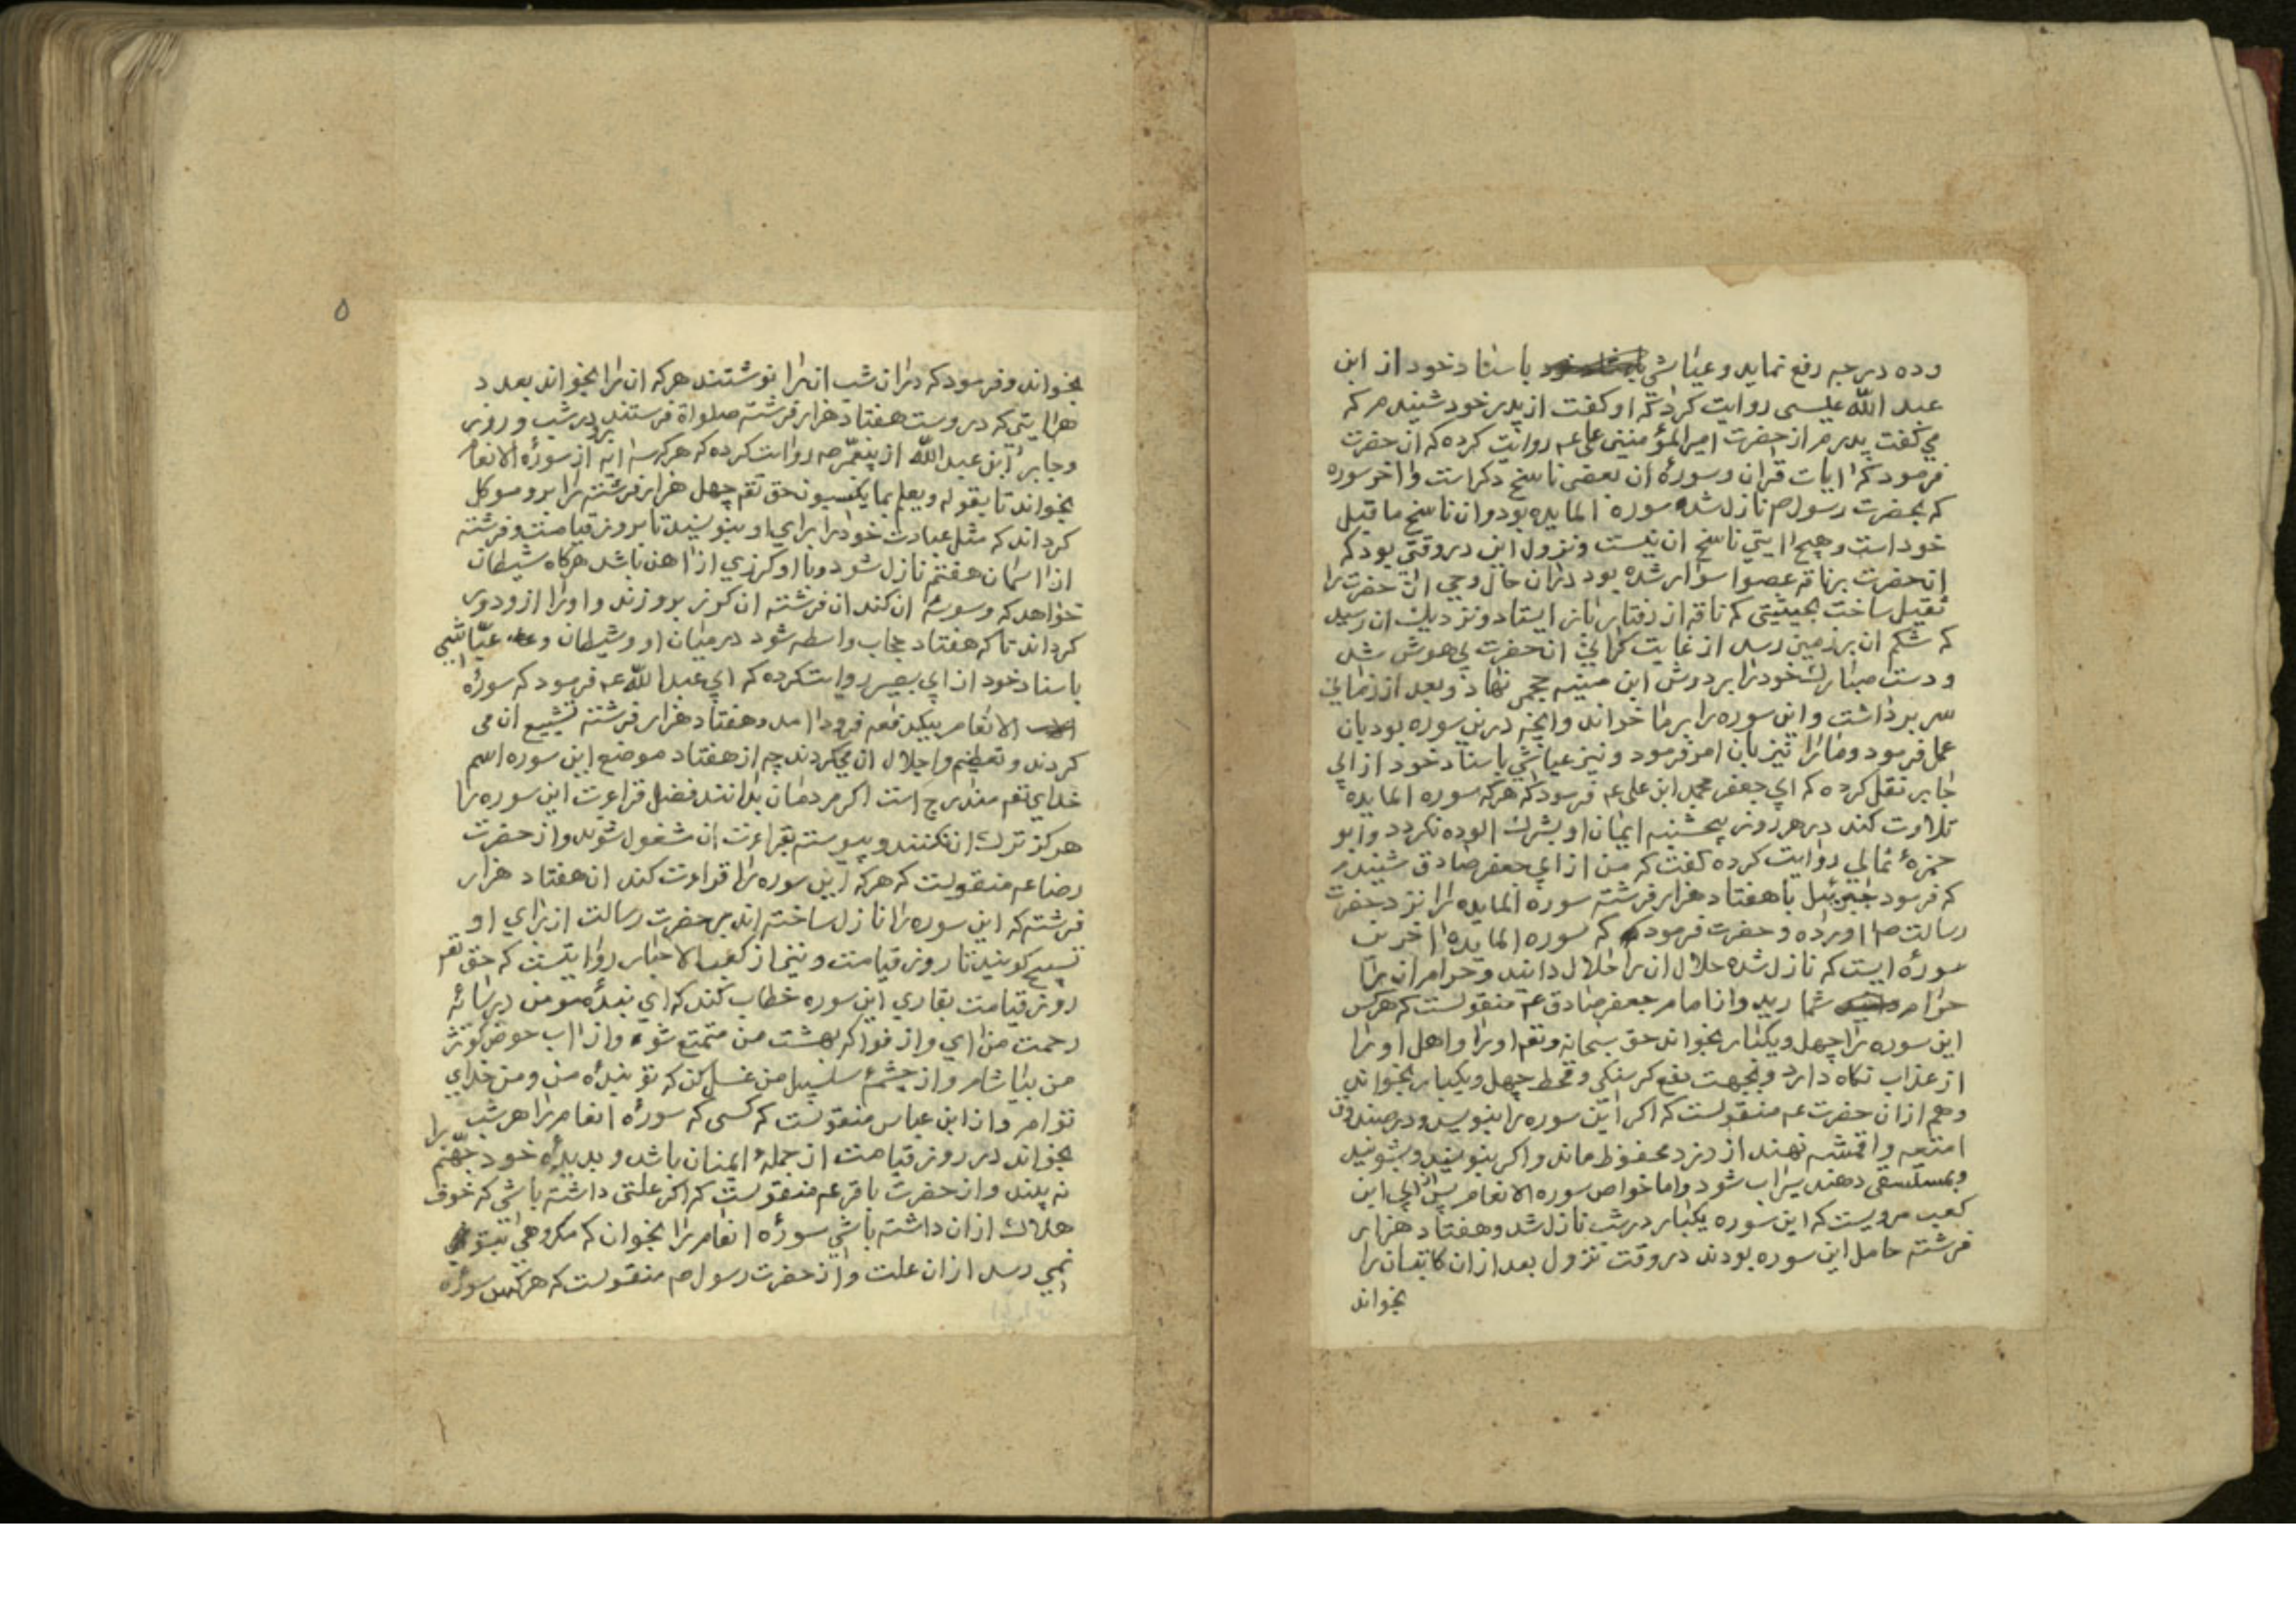 وده درجه رفع نمايد و عياشي باسناد خود از ابن
عبد الله عليسى روايت كرد كه او كفت از پدر خود شنيدم كه
مي كفت پدرم از حضرت امير المؤمنين علي عم روايت كرده كه ان حضرت
فرمود كه ايات قران و سورهٔ ان بعضى ناسخ دكر است و اخر سوره
كه بحضرت رسول صم نازل شده سوره المايده بود و ان ناسخ ما قبل
خود است و هيچ ايتي ناسخ ان نيست و نزول اين در وقتي بود كه
ان حضرت بر ناقه عصوا سوار شده بود در ان حال وحي ان حضرت را
ثقيل ساخت بحيثيتى كه ناقه از رفتار باز ايستاد و نزديك ان رسيد
كه شكم ان بر زمين رسد از غايت كراني ان حضرت بي هوش شد
و دست مبارك خود را بر دوش ابن منبه حجمى نهاد و بعد از زماني
سر برداشت و اين سوره را بر ما خواند و انچه درين سوره بود بان
عمل فرمود و ما را نيز بان امر فرمود و نيز عياشي باسناد خود از ابي
جابر نقل كرده كه ابي جعفر محمد ابن على عم فرمود كه هركه سوره المايده
تلاوت كند در هر روز پنجشنبه ايمان او بشرك الوده نكردد و ابو
حمزهٔ ثمالي روايت كرده كفت كه من از ابي جعفر صادق شنيدم
كه فرمود جبرئيل با هفتاد هزار فرشته سوره المايده را نزد حضرت
رسالت صم اورده و حضرت فرمود كه سوره المايده اخرين
سورهٔ ايست كه نازل شده حلال ان را حلال دانيد و حرام ان را
حرام شماريد و از امام جعفر صادق عم منقولست كه هركس
اين سوره را چهل و يكبار بخواند حق سبحانه و تعم او را و اهل او را
از عذاب نكاه دارد و بجهت دفع كرسنكي و قحط چهل و يكبار بخوانند
و هم از ان حضرت عم منقولست كه اكر اين سوره را بنويسد و در صندوق
امتعه و اقمشه نهند از دزد محفوظ ماند و اكر بنويسند و بشويند
و بمستسقى دهند سيراب شود و اما خواص سوره الانعام پس از ابي ابن
كعب مرويست كه اين سوره يكبار در شب نازل شد و هفتاد هزار
فرشته حامل اين سوره بودند در وقت نزول بعد از ان كاتبان را
بخواند
٥
بخواند و فرمود كه در ان شب ان را نوشتند هركه ان را بخواند بعدد
هر ايتي كه دروست هفتاد هزار فرشته صلواة فرستند برو در شب و روز
و جابر ابن عبد الله از پيغمبر صم روايت كرده كه هركه سه ايه از سورهٔ الانعام
بخواند تا بقوله و يعلم ما يكسبون حق تعم چهل هزار فرشته را برو موكل
كرداند كه مثل عبادت خود را براي او بنويسند تا بروز قيامت و فرشته
از اسمان هفتم نازل شود و با او كرزي از اهن باشد هركاه شيطان
خواهد كه وسوسهٔ ان كند ان فرشته ان كرز برو زند و او را ازو دور
كرداند تا كه هفتاد حجاب واسطه شود در ميان او و شيطان و عيّاشي
باسناد خود از ابي بصير روايت كرده كه ابي عبد الله عم فرمود كه سورهٔ
الانعام بيكدفعه فرود امد و هفتاد هزار فرشته تشييع ان مى
كردند و تعظيم و اجلال ان ميكردند چه از هفتاد موضع اين سوره اسم
خداي تعم مندرج است اكر مردمان بدانند فضل قراءت اين سوره را
هركز ترك ان نكنند و پيوسته بقراءت ان مشغول شوند و از حضرت
رضا عم منقولست كه هركه اين سوره را قراءت كند ان هفتاد هزار
فرشته كه اين سوره را نازل ساخته اند بر حضرت رسالت از براي او
تسبيح كويند تا روز قيامت و نيز از كعب الاحبار روايتست كه حق تعم
روز قيامت بقاري اين سوره خطاب كند كه اي بندهٔ مومن در سايهٔ
رحمت من اي و از فواكه بهشت من متمتع شو و از اب حوض كوثر
من بياشام و از چشمهٔ سلسبيل من غسل كن كه تو بندهٔ من و من خداي
توام و از ابن عباس منقولست كه كسى كه سورهٔ انعام را هر شب
بخواند در روز قيامت از جملهٔ ايمنان باشد و بديدهٔ خود جهنم را
نه بيند و از حضرت باقر عم منقولست كه اكر علتى داشته باشي كه خوف
هلاك از ان داشته باشي سورهٔ انعام را بخوان كه مكروهي بتو
نمي رسد از ان علت و از حضرت رسول صم منقولست كه هركس سورهٔ